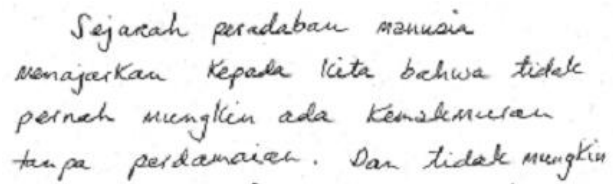 Sejarah peradaban manusia
menajarkan kepada kita bahwa tidak
pernah mungkin ada kemakmuran
tanpa perdamaian. Dan tidak mungkin